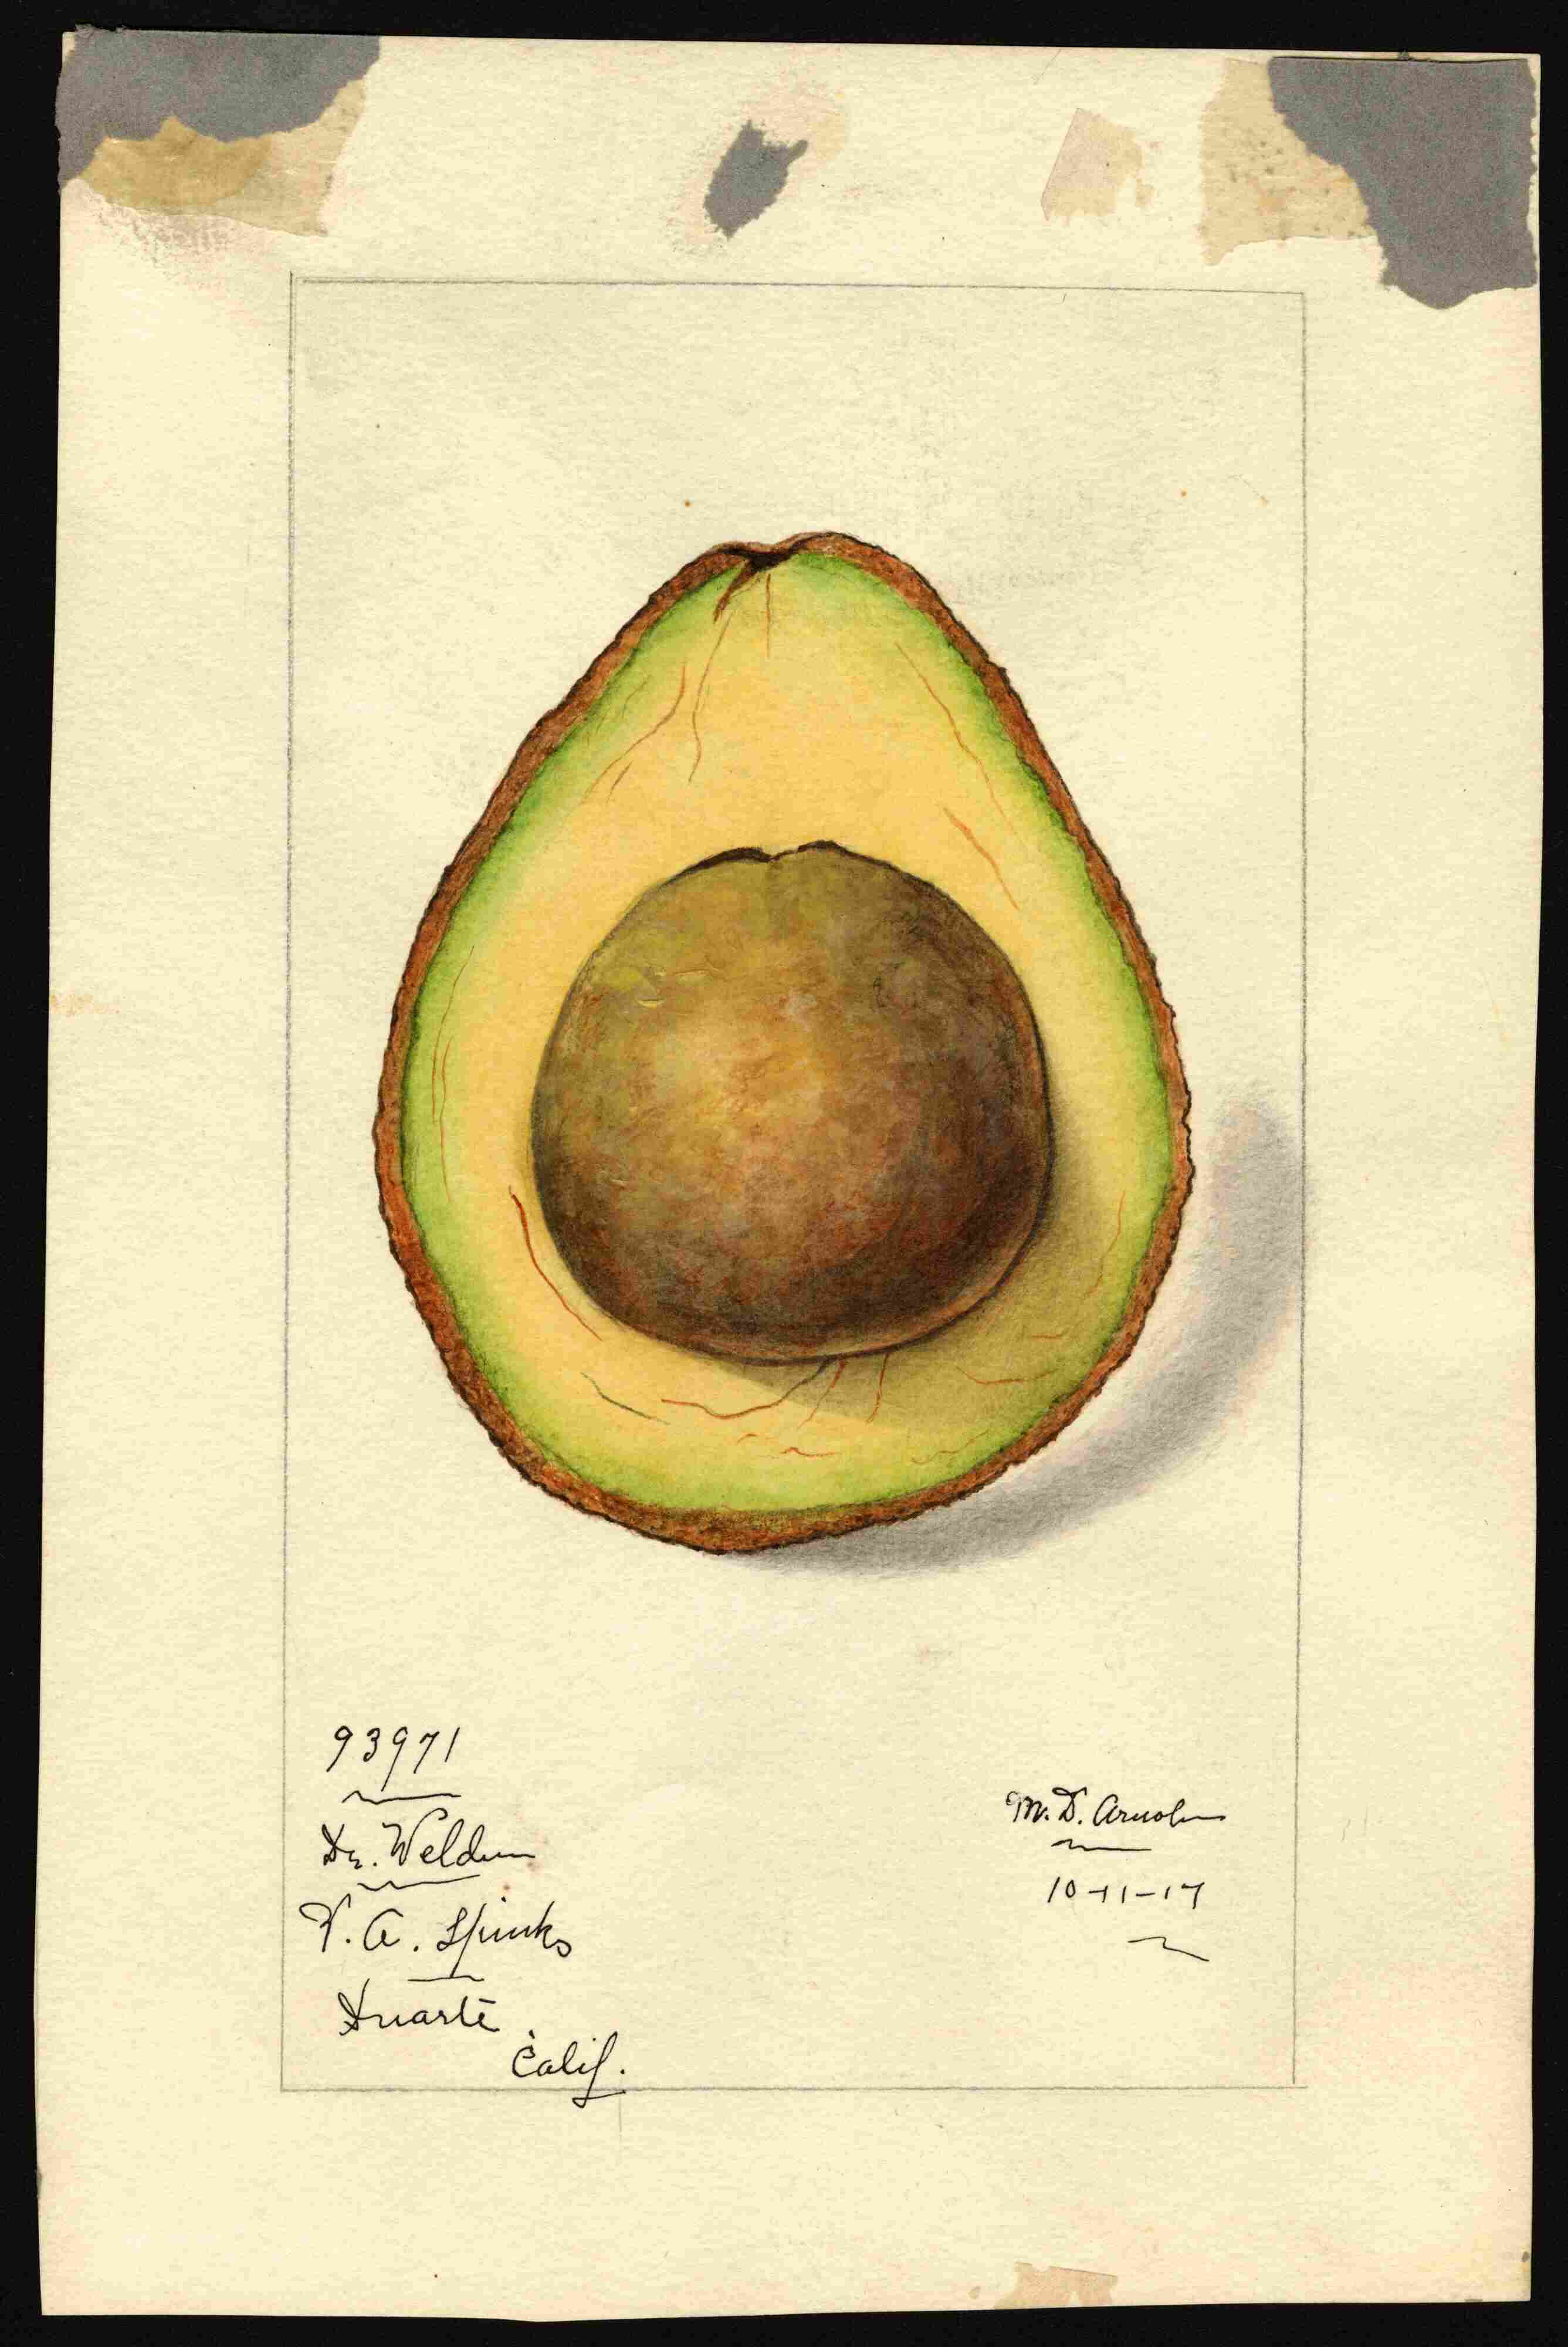 93971
Dr. Weldon
W. A. Spinks
Duarte
Calif.
M. D. Arnold
10-11-17